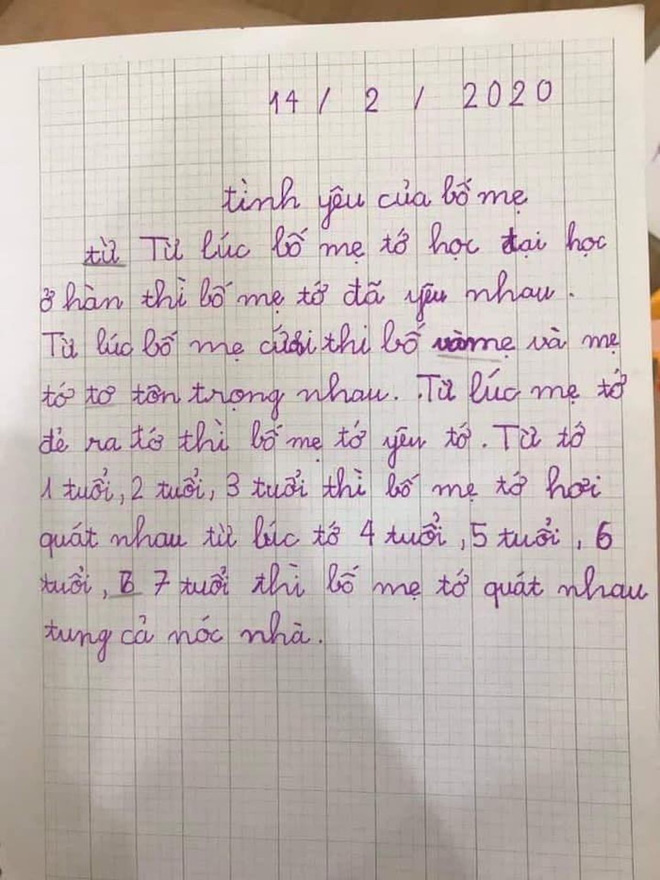 14 / 2 / 2020
tình yêu của bố mẹ
từ Từ lúc bố mẹ tớ học đại học
ở hàn thì bố mẹ tớ đã yêu nhau.
Từ lúc bố mẹ cưới thì bố và mẹ
tớ tơ tôn trọng nhau. Từ lúc mẹ tớ
đẻ ra tớ thì bố mẹ tớ yêu tớ. Từ tớ
1 tuổi, 2 tuổi, 3 tuổi thì bố mẹ tớ hơi
quát nhau từ lúc tớ 4 tuổi, 5 tuổi, 6
tuổi, 7 tuổi thì bố mẹ tớ quát nhau
tung cả nóc nhà.